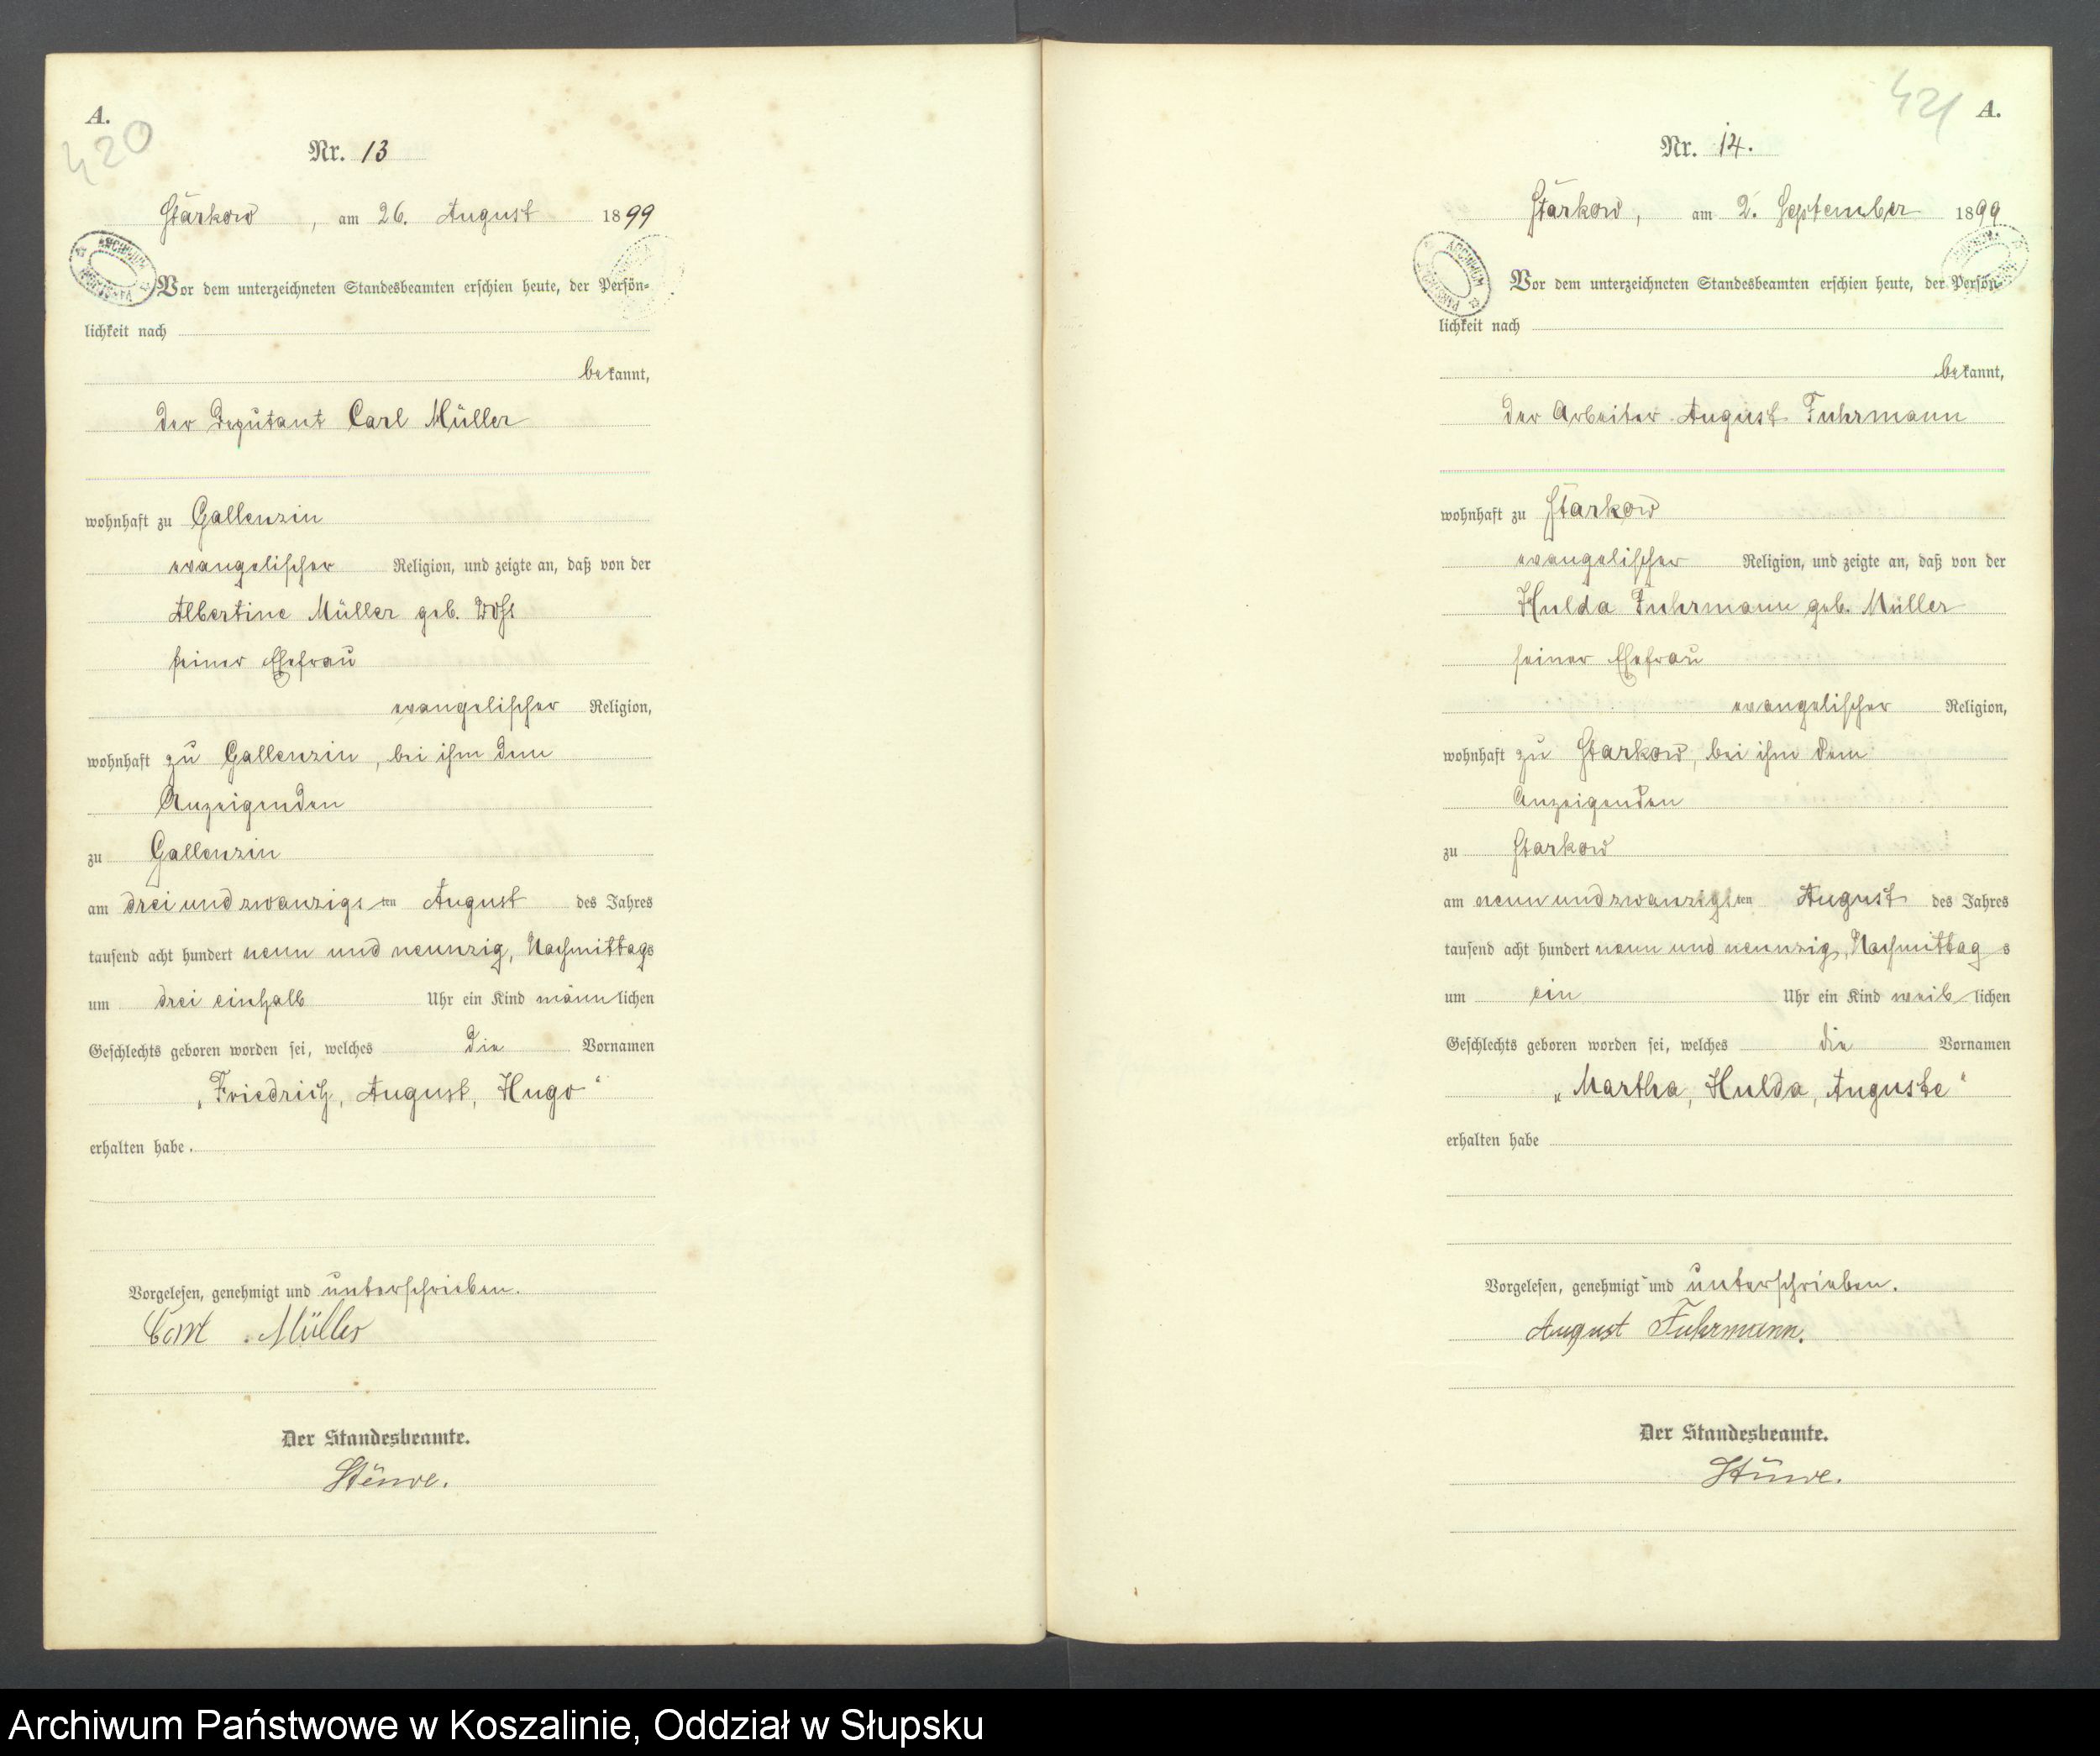 A.
420
Nr. 13
Starkow, am 26. August 1899
Vor dem unterzeichneten Standesbeamten erschien heute, der Persön-
lichkeit nach
bekannt,
der Deputant Carl Müller
wohnhaft zu Gallenzin
evangelischer Religion, und zeigte an, daß von der
Albertine Müller geb.
seiner Ehefrau
evangelischer Religion,
wohnhaft zu Gallenzin, bei ihm dem
Anzeigenden
zu Gallenzin
am drei und zwanzigsten August des Jahres
tausend acht hundert neun und neunzig, Nachmittags
um drei einhalb Uhr ein Kind männlichen
Geschlechts geboren worden sei, welches die Vornamen
„Friedrich, August, Hugo“
erhalten habe.
Vorgelesen, genehmigt und unterschrieben.
Carl Müller
Der Standesbeamte.
Stüwe.
421
A.
Nr. 14.
Starkow, am 2. September 1899
ARCHIWUM
Vor dem unterzeichneten Standesbeamten erschien heute, der Persön-
lichkeit nach
bekannt,
der Arbeiter August Fuhrmann
wohnhaft zu Starkow
evangelischer Religion, und zeigte an, daß von der
Hulda Fuhrmann geb. Müller
seiner Ehefrau
evangelischer Religion,
wohnhaft zu Starkow, bei ihm dem
Anzeigenden
zu Starkow
am neun und zwanzigsten August des Jahres
tausend acht hundert neun und neunzig, Nachmittags
um ein Uhr ein Kind weiblichen
Geschlechts geboren worden sei, welches die Vornamen
„Martha, Hulda, Auguste“
erhalten habe
Vorgelesen, genehmigt und unterschrieben.
August Fuhrmann.
Der Standesbeamte.
Stüwe.
Archiwum Państwowe w Koszalinie, Oddział w Słupsku